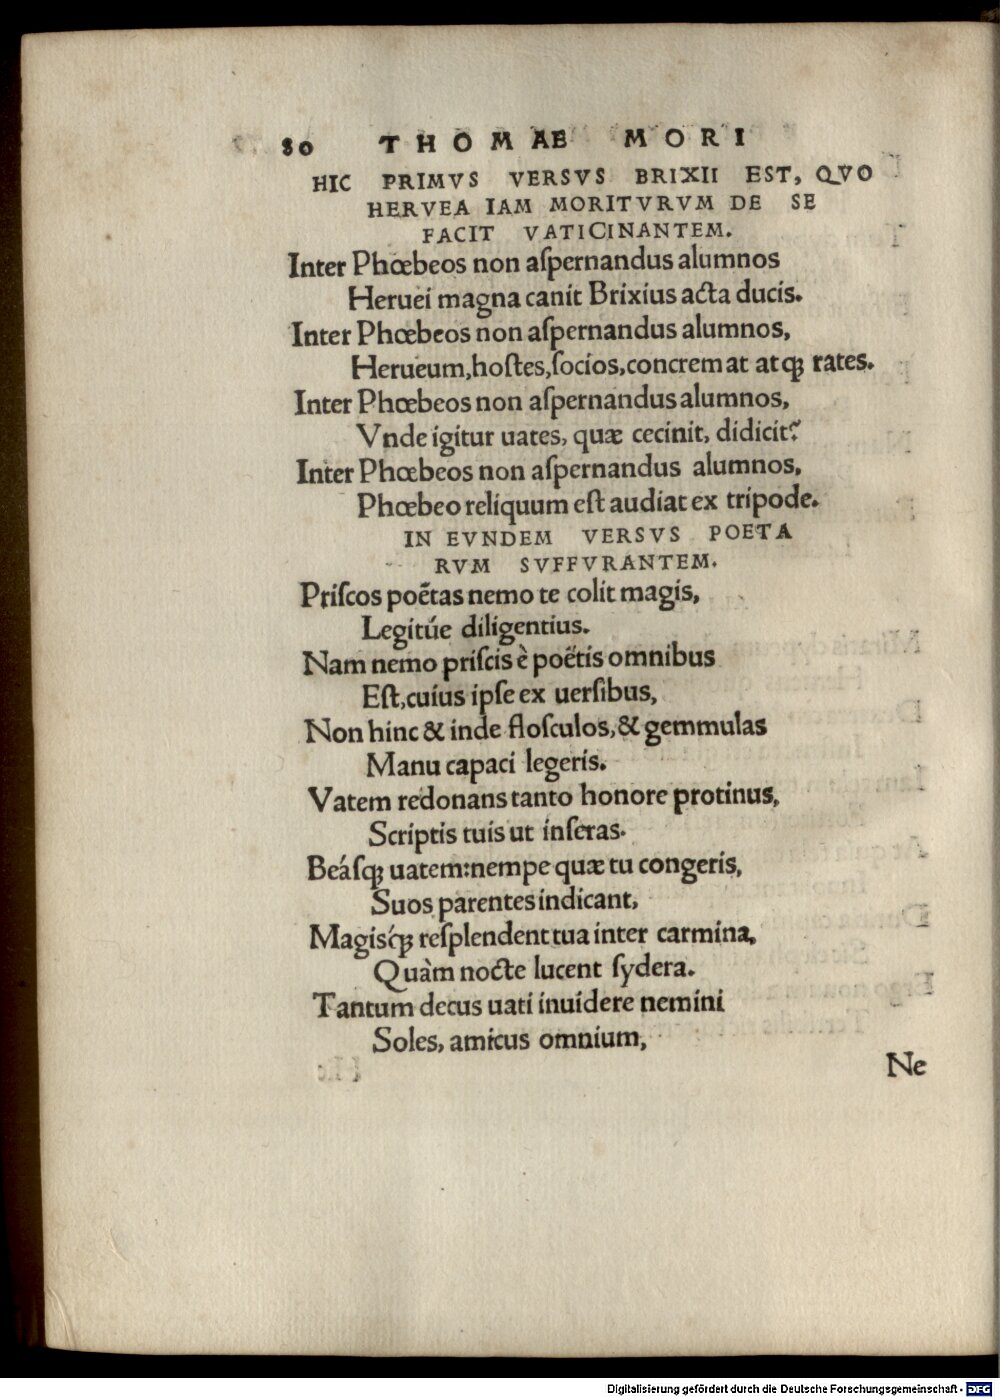 80 THOMAE MORI
HIC PRIMVS VERSVS BRIXII EST, QVO
HERVEA IAM MORITVRVM DE SE
FACIT VATICINANTEM.
Inter Phœbeos non aſpernandus alumnos
Heruei magna canit Brixius acta ducis.
Inter Phœbeos non aſpernandus alumnos,
Herueum,hoſtes,ſocios,concremat atqꝫ rates.
Inter Phœbeos non aſpernandus alumnos,
Vnde igitur uates, quæ cecinit, didicit?
Inter Phœbeos non aſpernandus alumnos,
Phœbeo reliquum eſt audiat ex tripode.
IN EVNDEM VERSVS POETA
RVM SVFFVRANTEM.
Priſcos poëtas nemo te colit magis,
Legitúe diligentius.
Nam nemo priſcis è poëtis omnibus
Eſt,cuius ipſe ex uerſibus,
Non hinc & inde floſculos,& gemmulas
Manu capaci legeris.
Vatem redonans tanto honore protinus,
Scriptis tuis ut inſeras.
Beáſqꝫ uatem:nempe quæ tu congeris,
Suos parentes indicant,
Magisq́ꝫ reſplendent tua inter carmina,
Quàm nocte lucent ſydera.
Tantum decus uati inuidere nemini
Soles, amicus omnium,
Ne
Digitalisierung gefördert durch die Deutsche Forschungsgemeinschaft - DFG